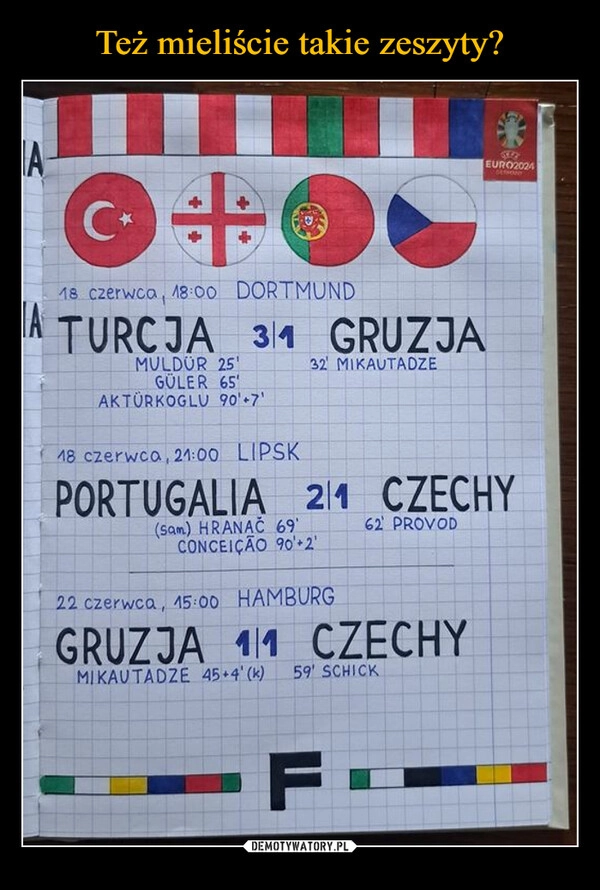 Też mieliście takie zeszyty?
A
EURO2024
GERMANY
18 czerwca, 18:00 DORTMUND
A
TURCJA 3|1 GRUZJA
MULDÜR 25' 32' MIKAUTADZE
GÜLER 65'
AKTÜRKOGLU 90'+7'
18 czerwca, 21:00 LIPSK
PORTUGALIA 2|1 CZECHY
(sam) HRANAČ 69' 62' PROVOD
CONCEIÇÃO 90'+2'
22 czerwca, 15:00 HAMBURG
GRUZJA 1|1 CZECHY
MIKAUTADZE 45+4' (k) 59' SCHICK
F
DEMOTYWATORY.PL